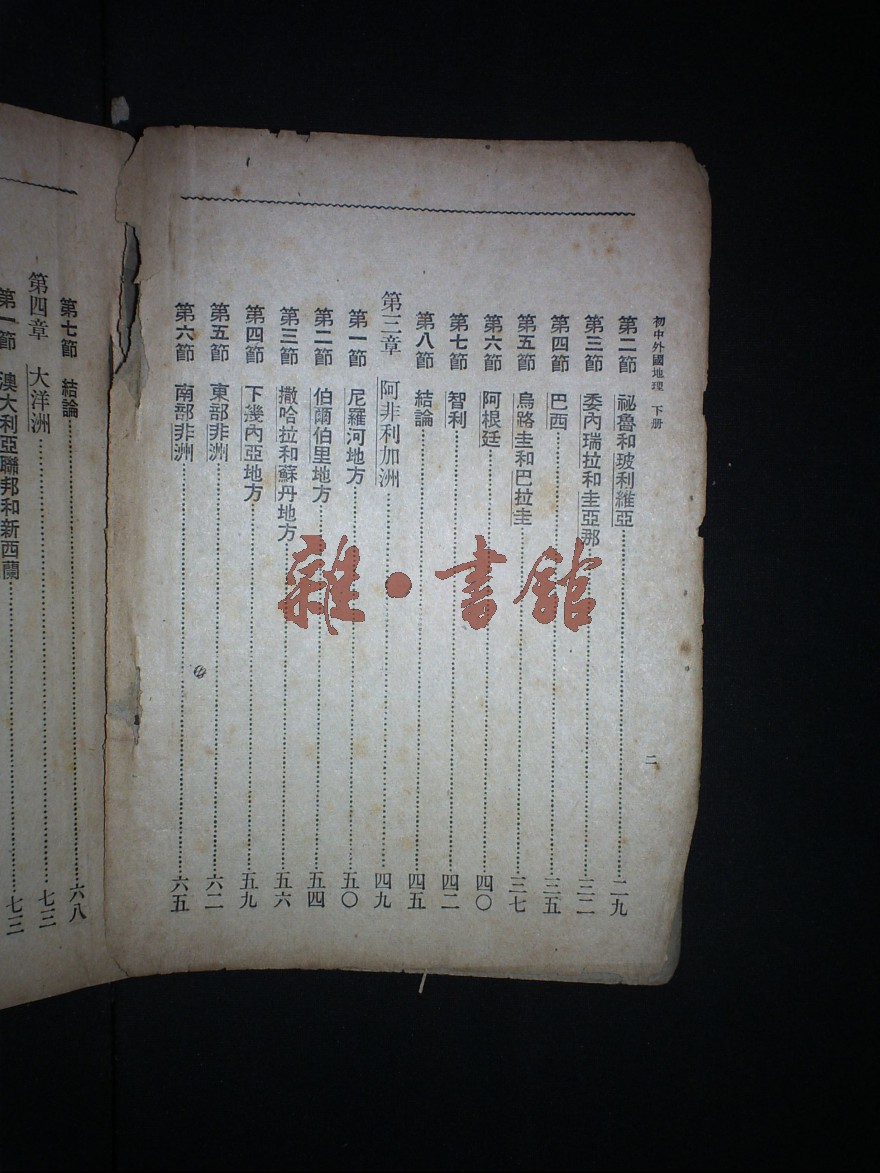 初中外國地理 下册
二
第二節 祕魯和玻利維亞 二九
第三節 委內瑞拉和圭亞那 三二
第四節 巴西 三五
第五節 烏路圭和巴拉圭 三七
第六節 阿根廷 四〇
第七節 智利 四二
第八節 結論 四五
第三章 阿非利加洲 四九
第一節 尼羅河地方 五〇
第二節 伯爾伯里地方 五四
第三節 撒哈拉和蘇丹地方 五六
第四節 下幾內亞地方 五九
第五節 東部非洲 六二
第六節 南部非洲 六五
第七節 結論 六八
第四章 大洋洲 七三
第一節 澳大利亞聯邦和新西蘭 七三
雜·書館